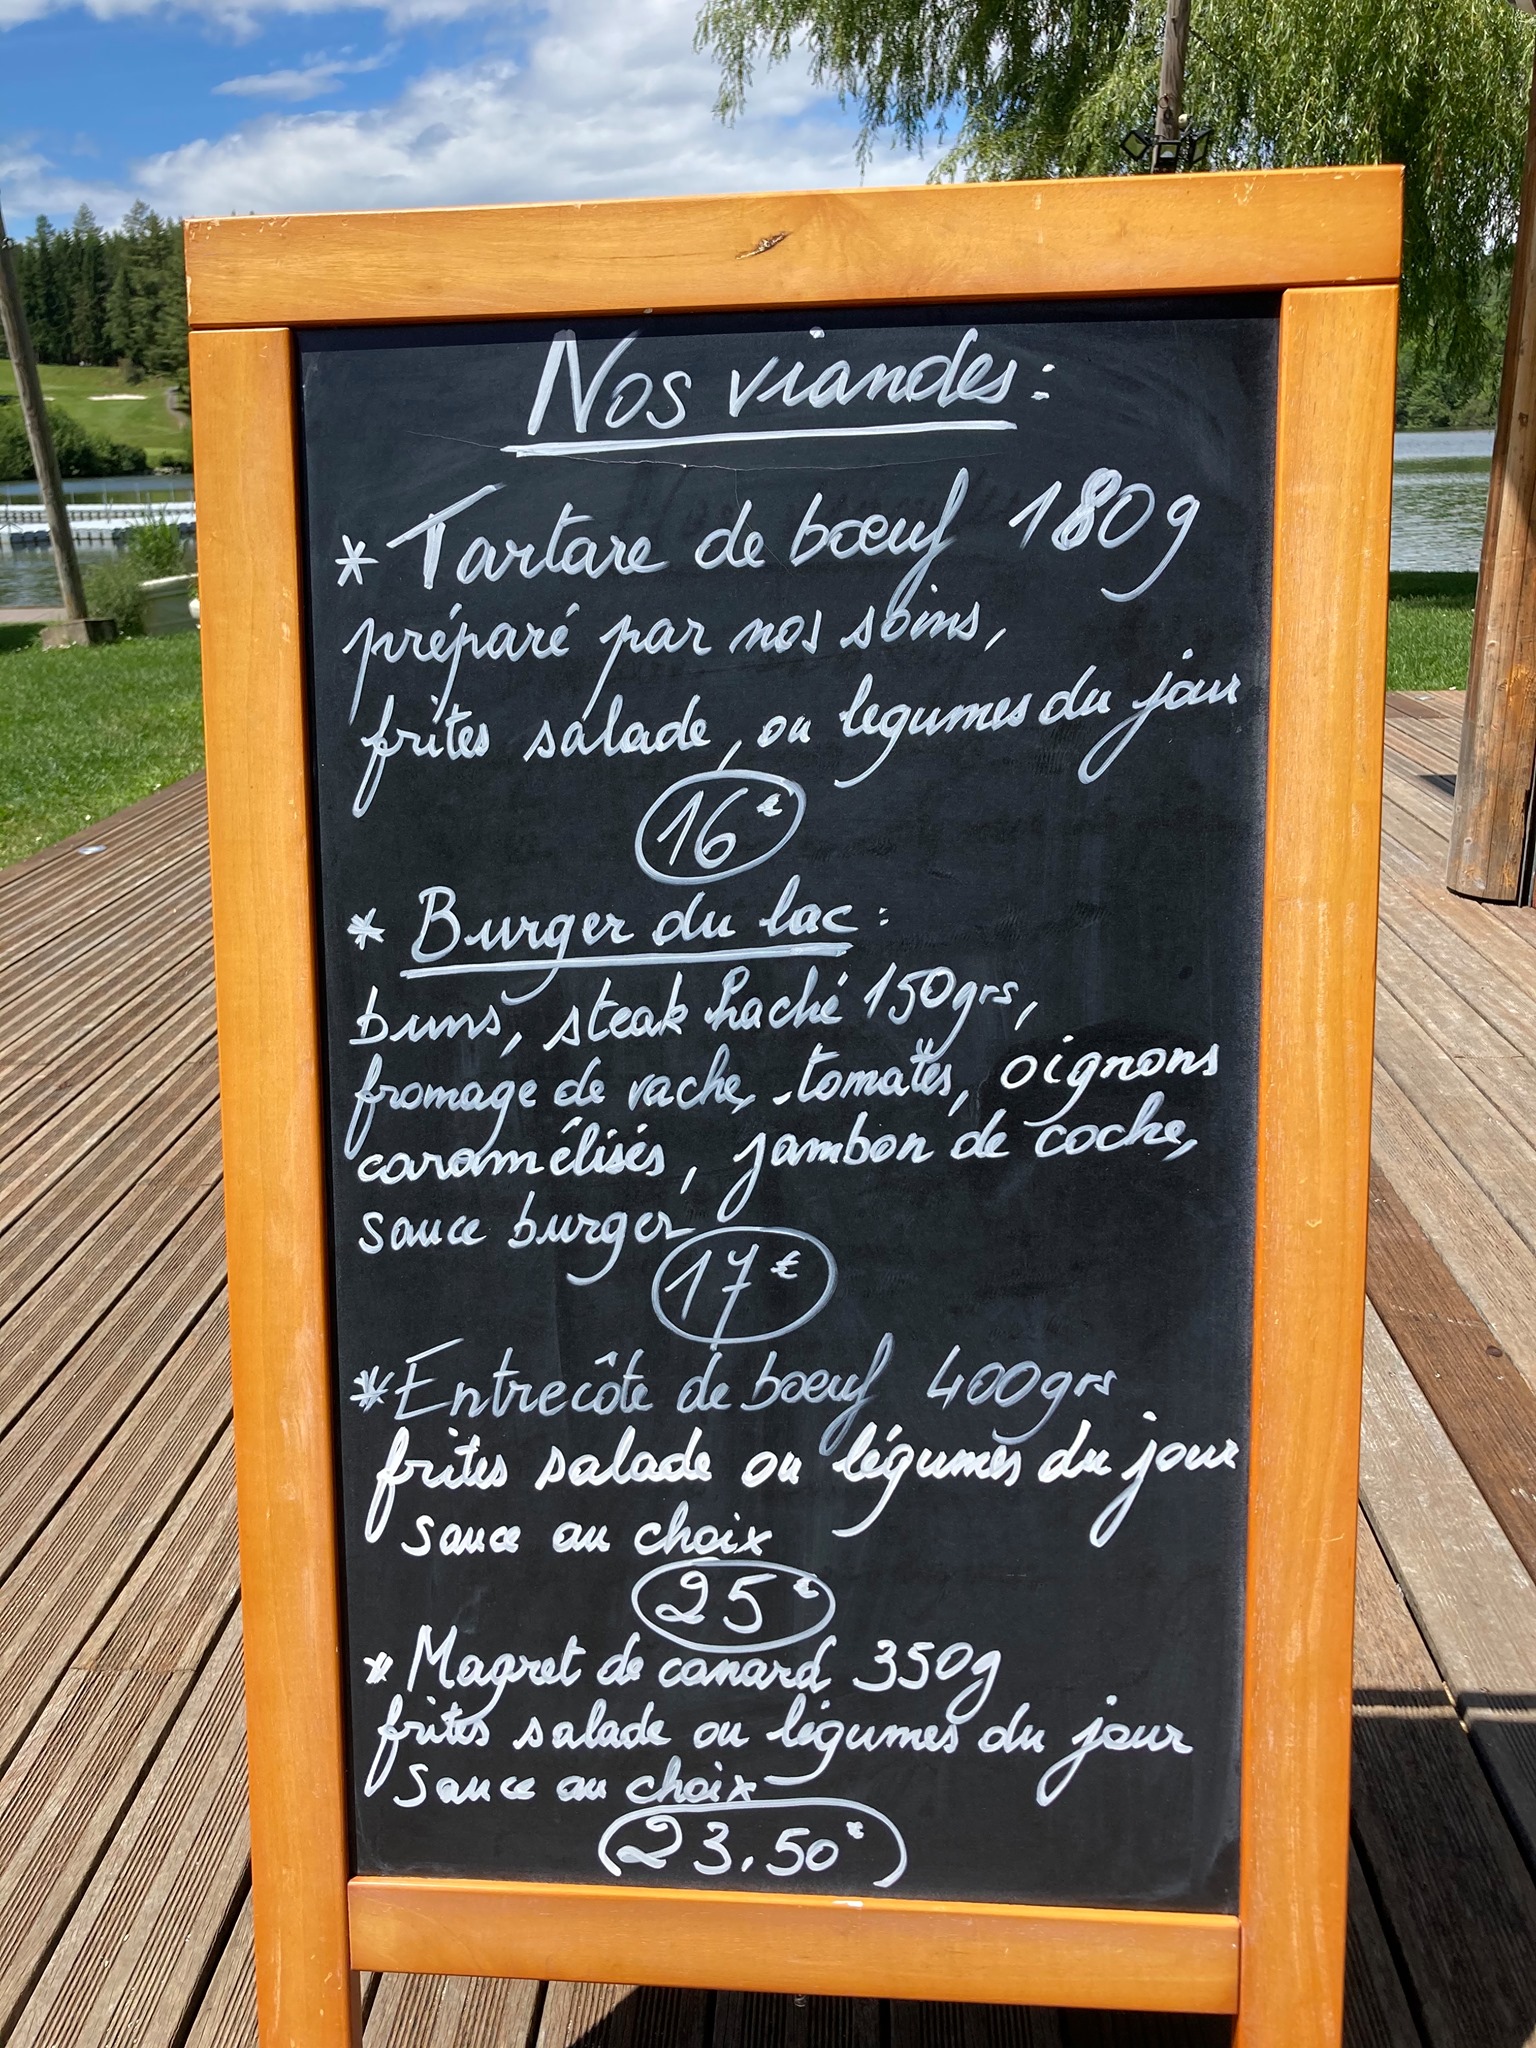 Nos viandes:
* Tartare de bœuf 180g
préparé par nos soins,
frites salade, ou légumes du jour
16€
* Burger du lac:
buns, steak haché 150grs,
fromage de vache, tomates, oignons
caramélisés, jambon de coche,
sauce burger
17€
* Entrecôte de bœuf 400grs
frites salade ou légumes du jour
sauce au choix
25€
* Magret de canard 350g
frites salade ou légumes du jour
sauce au choix
23.50€